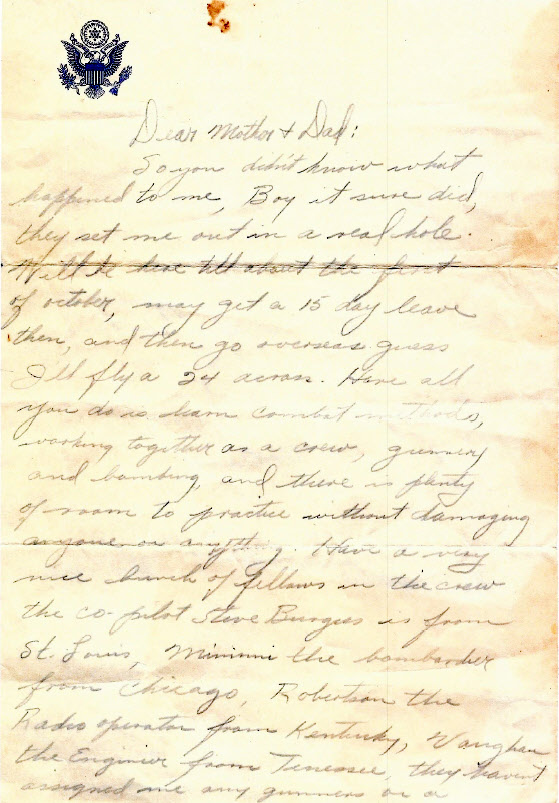 Dear Mother + Dad:
So you didn't know what
happened to me, Boy it sure did,
they set me out in a real hole.
Will be here till about the first
of october, may get a 15 day leave
then, and then go overseas guess
I'll fly a 24 across. Here all
you do is learn combat methods,
working together as a crew, gunnery
and bombing, and there is plenty
of room to practice without damaging
anyone or anything. Have a very
nice bunch of fellows in the crew
the co-pilot Steve Burgess is from
St. Louis, Minimi the bombardier
from Chicago, Robertson the
Radio operator from Kentucky, Vaughan
the Engineer from Tenessee, they havent
assigned me any gunners or a